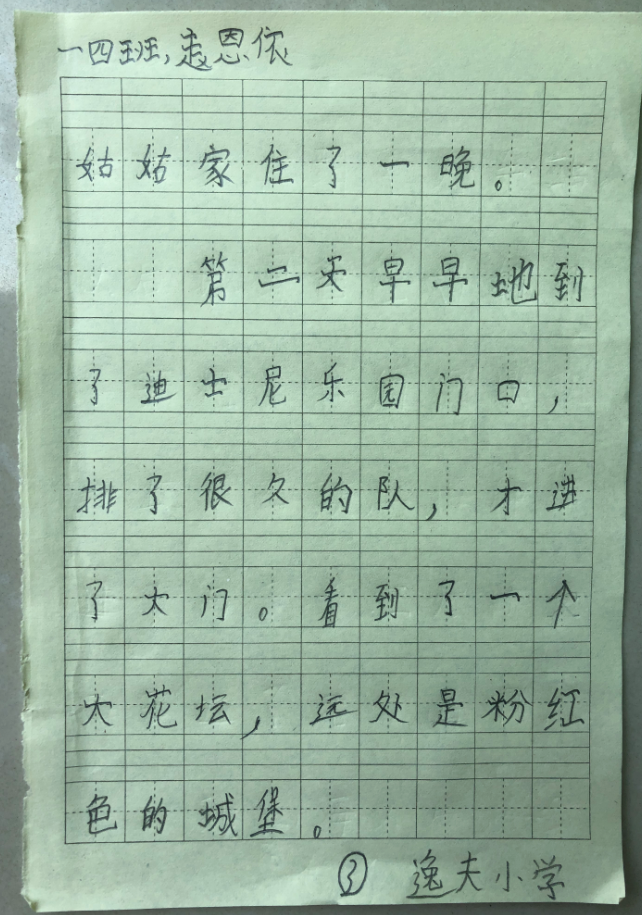 一四班,赵恩依
姑姑家住了一晚。
第二天早早地到
了迪士尼乐园门口,
排了很久的队,才进
了大门。看到了一个
大花坛,远处是粉红
色的城堡。
③ 逸夫小学